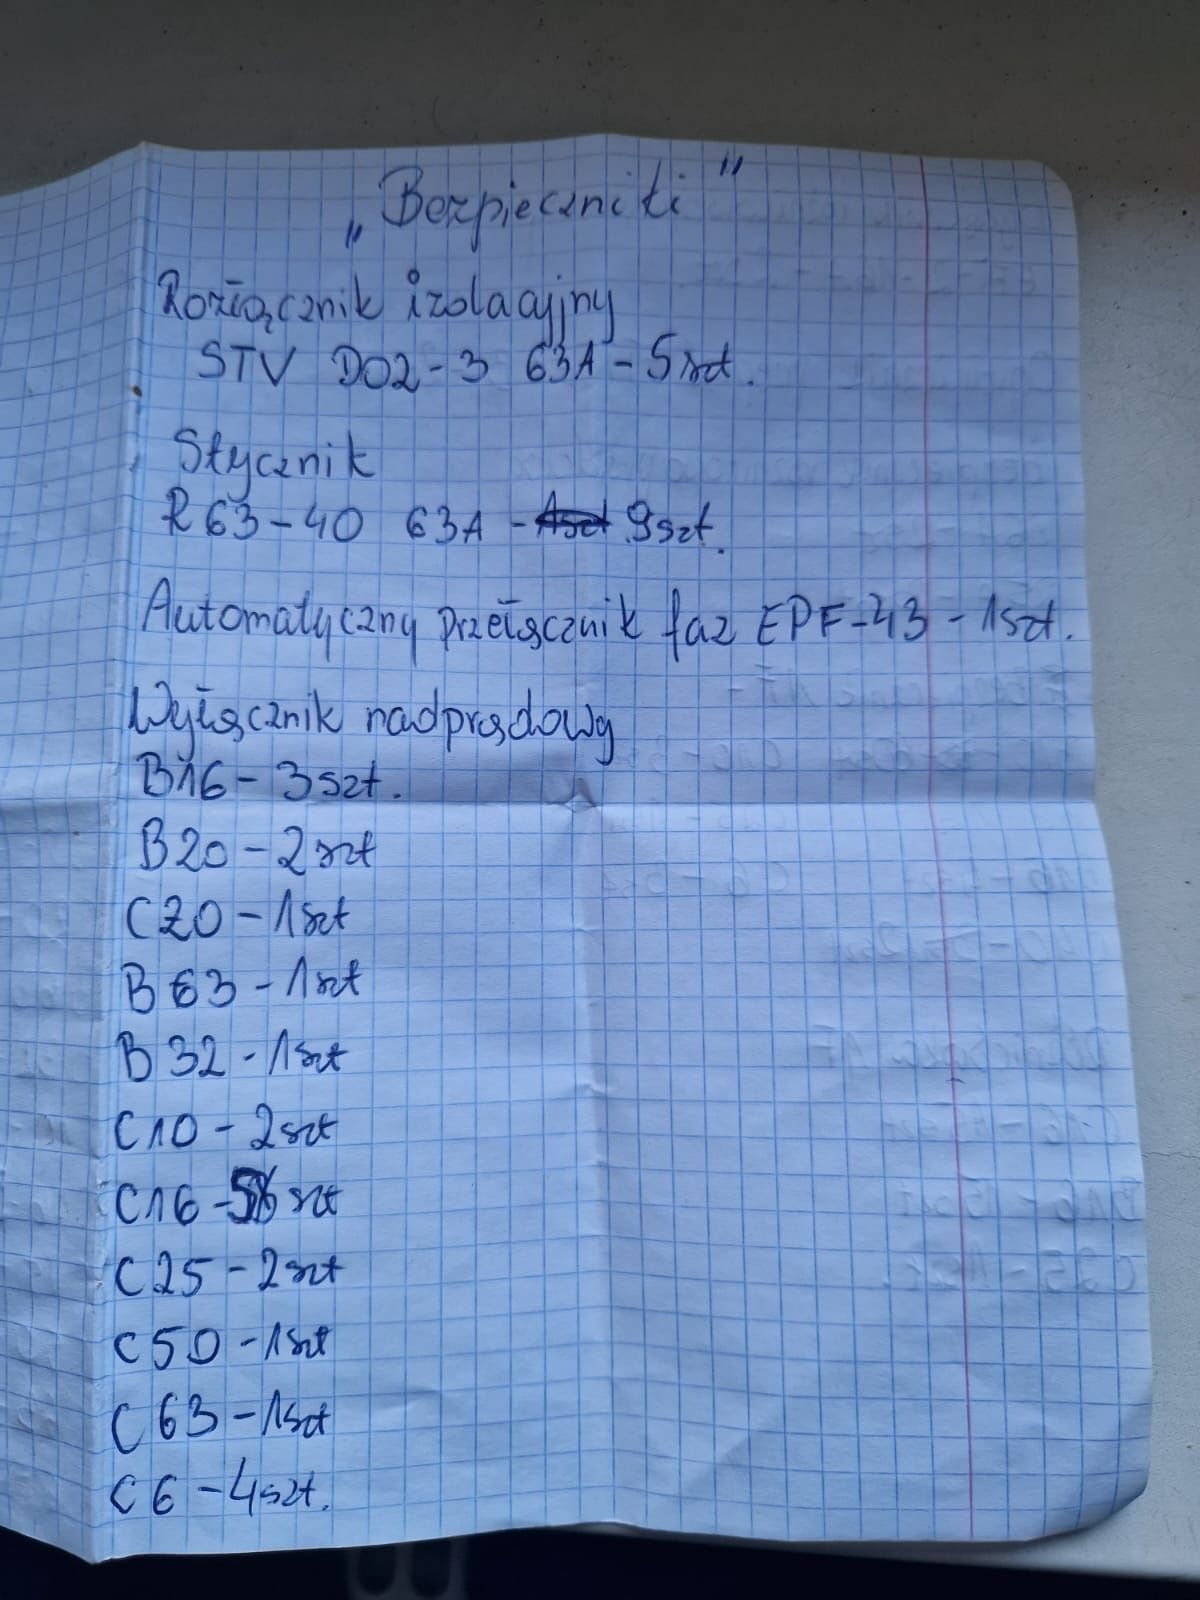 „Bezpieczniki"
Rozłącznik izolacyjny
STV D02-3 63A - 5szt.
Stycznik
R63-40 63A - 9szt.
Automatyczny przełącznik faz EPF-43 - 1szt.
Wyłącznik nadprądowy
B16 - 3szt.
B20 - 2szt
C20 - 1szt
B63 - 1szt
B32 - 1szt
C10 - 2szt
C16 - szt
C25 - 2szt
C50 - 1szt
C63 - 1szt
C6 - 4szt.